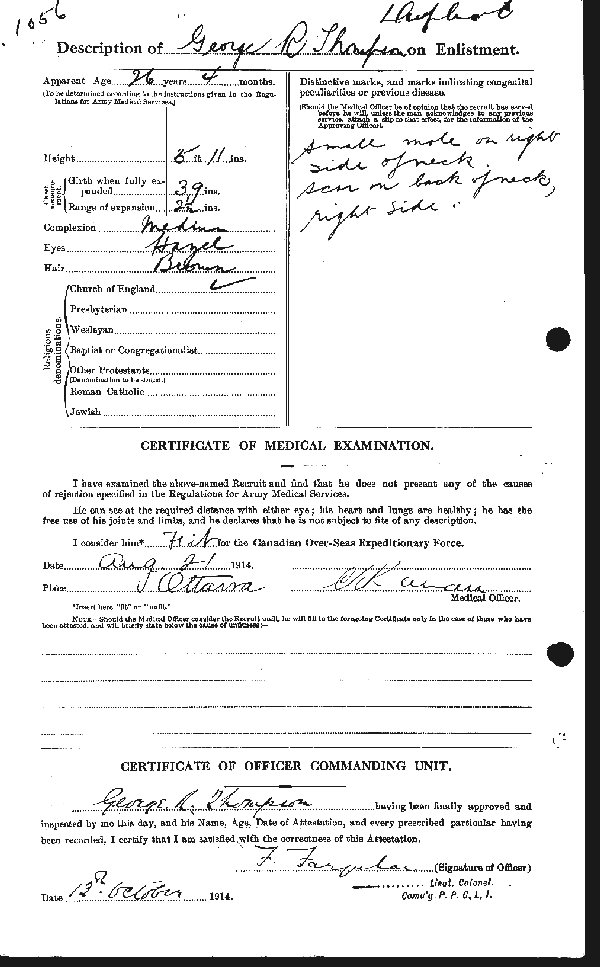 1056
Description of George R Thompson on Enlistment.
Apparent Age 26 years 4 months.
(To be determined according to the instructions given in the Regulations for Army Medical Services.)
Height 5 ft 11 ins.
Girth when fully expanded 39 ins.
Range of expansion ins.
Complexion Medium
Eyes Hazel
Hair Brown
Religious denominations.
Church of England ✓
Presbyterian
Wesleyan
Baptist or Congregationalist
Other Protestants
(Denomination to be stated.)
Roman Catholic
Jewish
Distinctive marks, and marks indicating congenital
peculiarities or previous disease.
(Should the Medical Officer be of opinion that the recruit has served
before, he will, unless the man acknowledges to any previous
service, attach a slip to that effect, for the information of the
Approving Officer).
small mole on right
side of neck.
scar on back of neck,
right side.
CERTIFICATE OF MEDICAL EXAMINATION.
I have examined the above-named Recruit and find that he does not present any of the causes
of rejection specified in the Regulations for Army Medical Services.
He can see at the required distance with either eye; his heart and lungs are healthy; he has the
free use of his joints and limbs, and he declares that he is not subject to fits of any description.
I consider him* Fit for the Canadian Over-Seas Expeditionary Force.
Date Aug 21 1914.
Place Ottawa
Medical Officer.
*Insert here "fit" or "unfit."
NOTE.—Should the Medical Officer consider the Recruit unfit, he will fill in the foregoing Certificate only in the case of those who have
been attested, and will briefly state below the cause of unfitness:—
CERTIFICATE OF OFFICER COMMANDING UNIT.
George R. Thompson having been finally approved and
inspected by me this day, and his Name, Age, Date of Attestation, and every prescribed particular having
been recorded, I certify that I am satisfied with the correctness of this Attestation.
F. Farquhar (Signature of Officer)
Lieut. Colonel.
Date 12th October 1914.
Comd'g P. P. C. L. I.